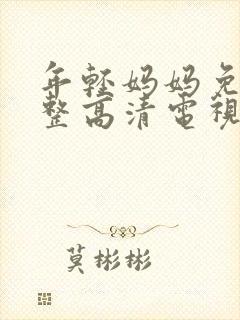 年輕媽媽免
整高清電視
莫彬彬